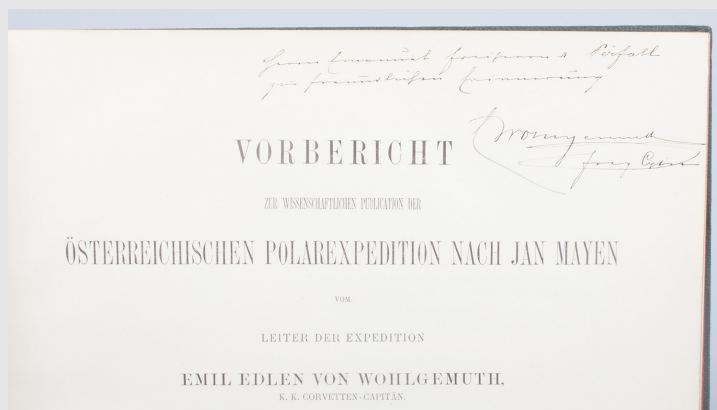 Herrn Emanuel Freiherrn v.
zur freundlichen Erinnerung
Wohlgemuth
VORBERICHT
ZUR WISSENSCHAFTLICHEN PUBLICATION DER
ÖSTERREICHISCHEN POLAREXPEDITION NACH JAN MAYEN
VOM
LEITER DER EXPEDITION
EMIL EDLEN VON WOHLGEMUTH,
K. K. CORVETTEN-CAPITÄN.